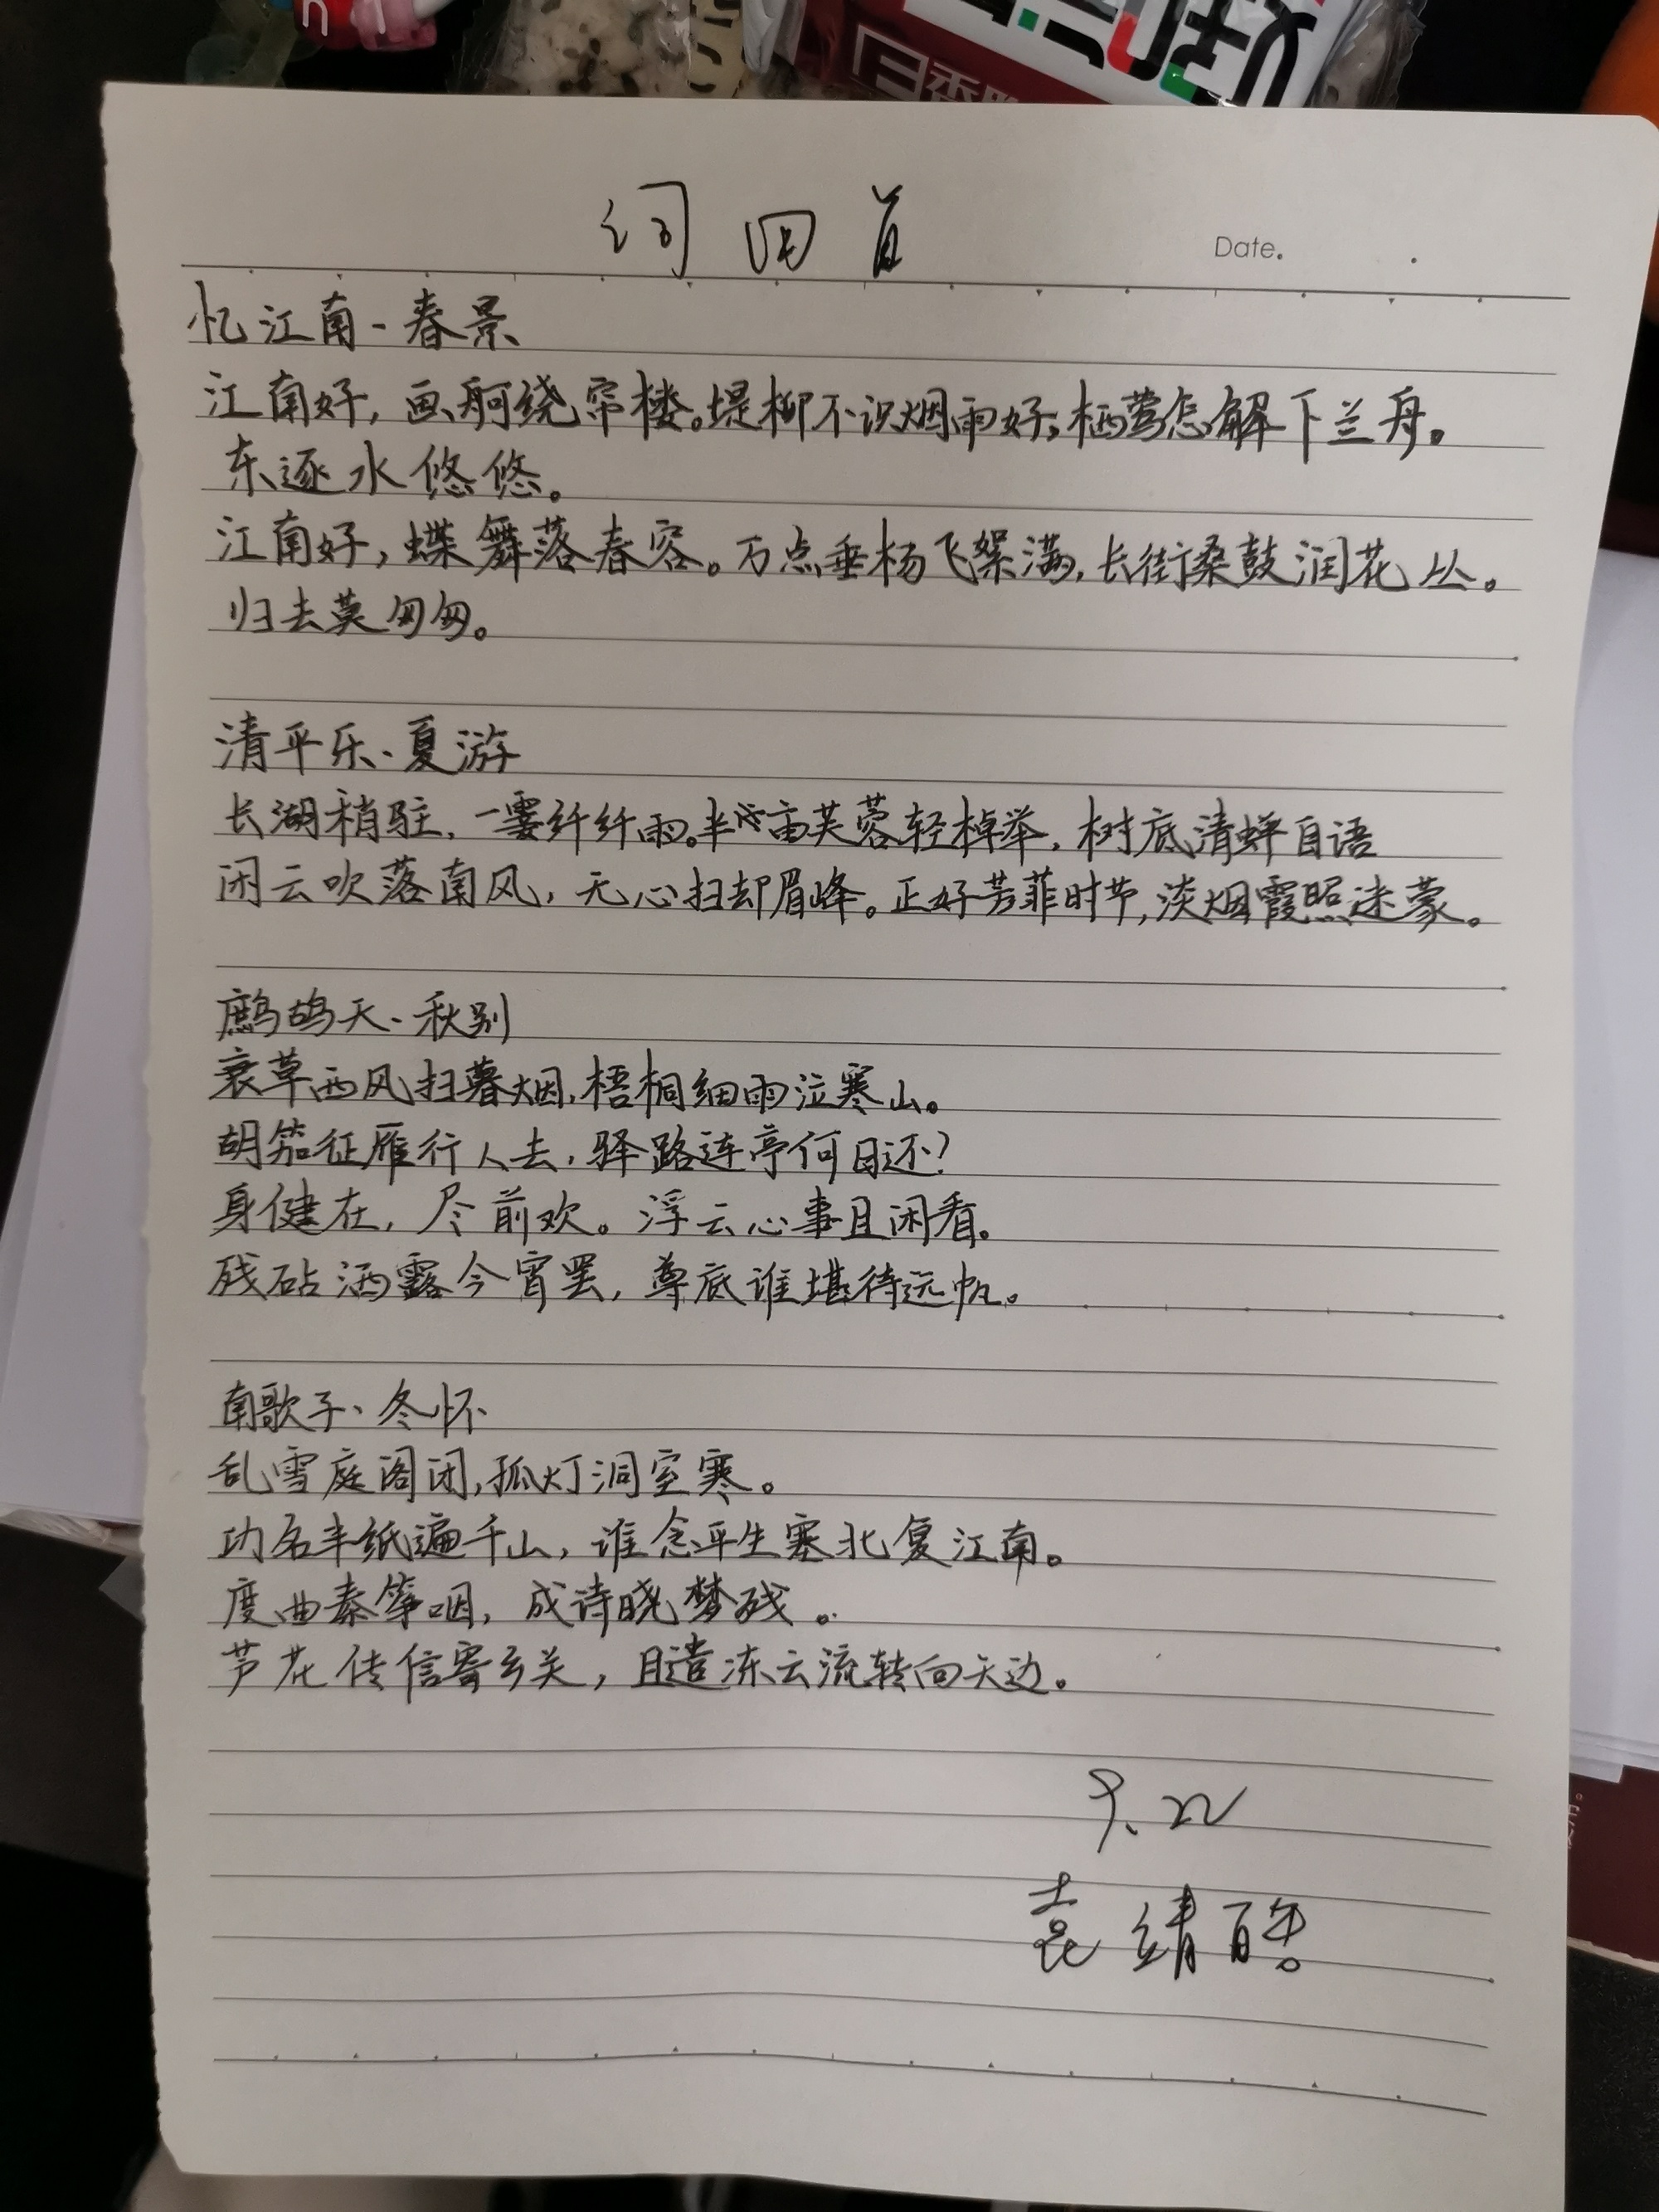 词四首
Date.
忆江南·春景
江南好，画舸绕帘楼。堤柳不识烟雨好，栖莺怎解下兰舟。
东逐水悠悠。
江南好，蝶舞落春容。万点垂杨飞絮满，长街桑鼓润花丛。
归去莫匆匆。
清平乐·夏游
长湖稍驻，一霎纤纤雨。半亩芙蓉轻棹举，树底清蝉自语
闲云吹落南风，无心扫却眉峰。正好芳菲时节，淡烟霞照迷蒙。
鹧鸪天·秋别
衰草西风扫暮烟，梧桐细雨泣寒山。
胡笳征雁行人去，驿路连亭何日还？
身健在，尽前欢。浮云心事且闲看。
残砧洒露今宵罢，尊底谁堪待远帆。
南歌子·冬怀
乱雪庭阁闭，孤灯洞室寒。
功名半纸遍千山，谁念平生塞北复江南。
度曲秦筝咽，成诗晓梦残。
芦花传信寄乡关，且遣冻云流转向天边。
9.22
袁靖